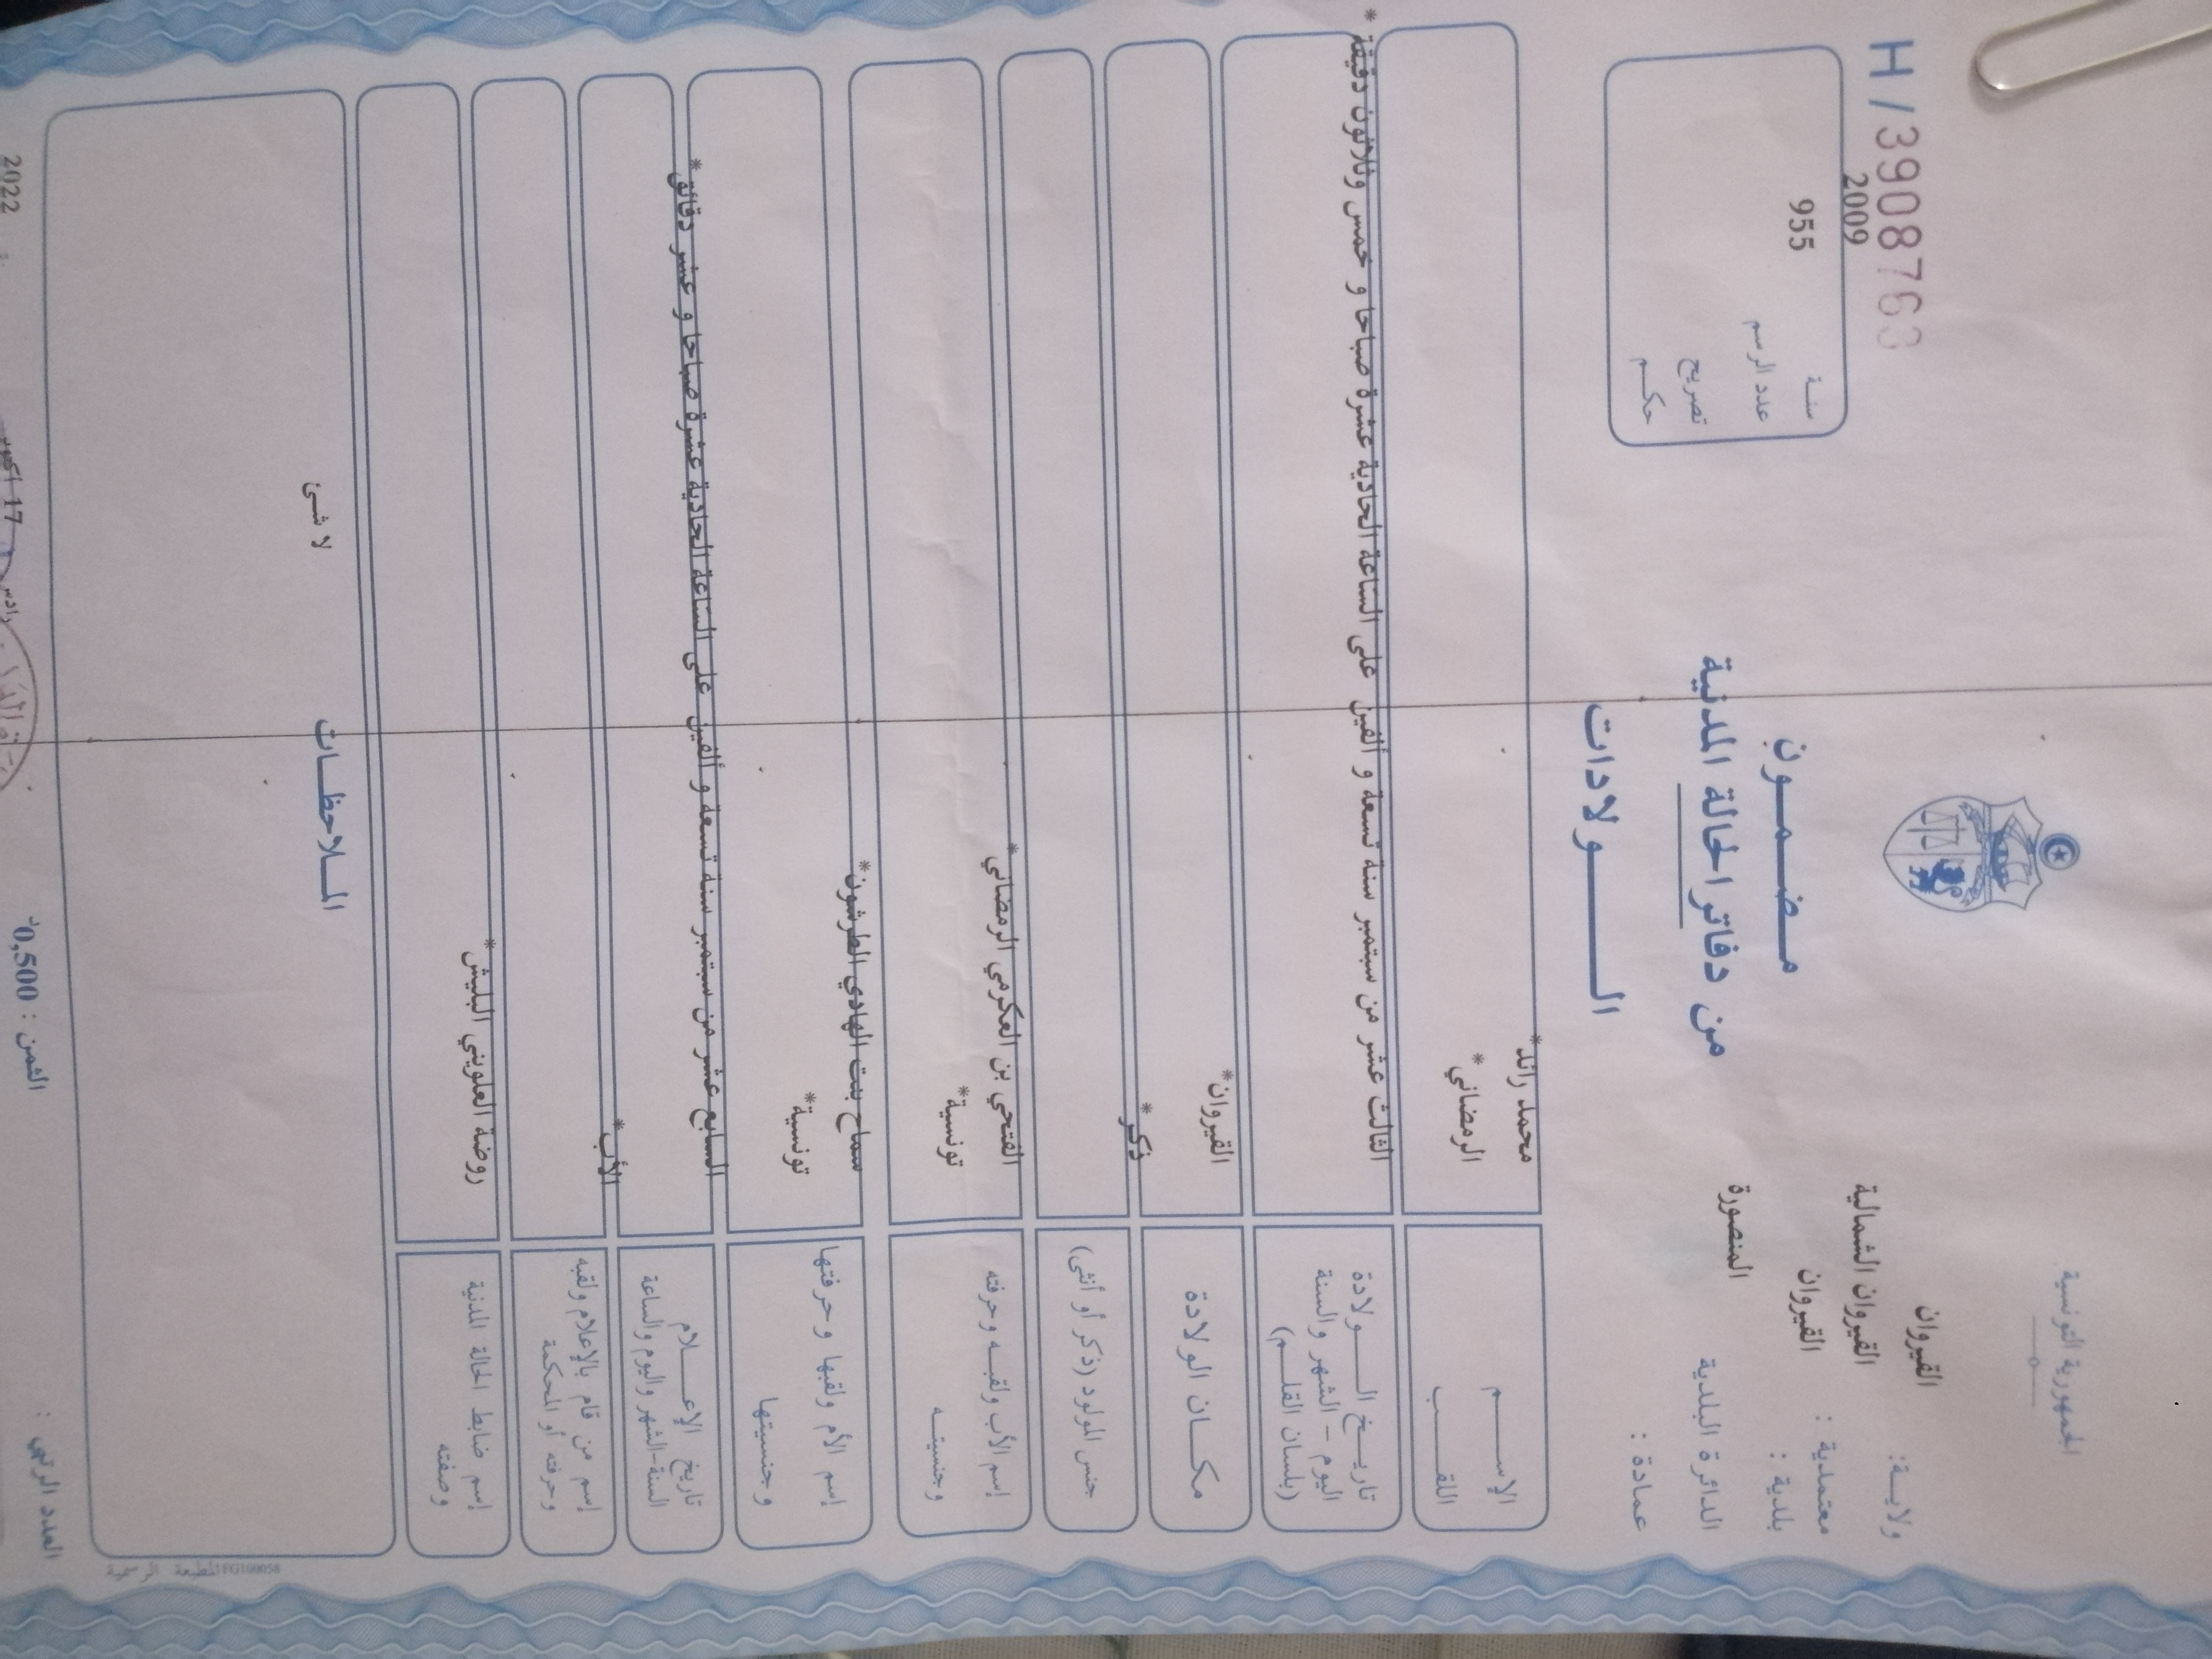 H / 39087763
الجمهورية التونسية
ولايـة: القيروان
معتمدية : القيروان الشمالية
بلدية : القيروان
الدائرة البلدية المنصورة
عمادة :
مـضـمـون
من دفاتر الحالة المدنية
الـــولادات
سنـة 2009
عدد الرسم 955
تصريح
حكـم
الإســـم محمد رائد*
اللقـــب الرمضاني *
تاريـخ الـــولادة
اليوم - الشهر والسنة
(بلسان القلـم)
الثالث عشر من سبتمبر سنة تسعة و ألفين على الساعة الحادية عشرة صباحا و خمس وثلاثون دقيقة *
مكـان الولادة القيروان*
جنس المولود (ذكر أو أنثى) ذكر *
إسم الأب ولقبـه وحرفته الفتحي بن العكرمي الرمضاني *
وجنسيتـه تونسية*
إسم الأم ولقبها وحرفتها سماح بنت الهادي الطرشون*
وجنسيتها تونسية*
تاريخ الإعـــلام
السنة-الشهر واليوم والساعة
السابع عشر من سبتمبر سنة تسعة و ألفين على الساعة الحادية عشرة صباحا و عشر دقائق *
إسم من قام بالإعلام ولقبه
وحرفته أو المحكمة
الأب*
إسم ضابط الحالة المدنية
وصفته
روضة العلويني البليش *
المـلاحظـات
لا شئ
المطبعة الرسمية
العدد الرقمي :
الثمن : 0,500د
17 اكتوبر
2022